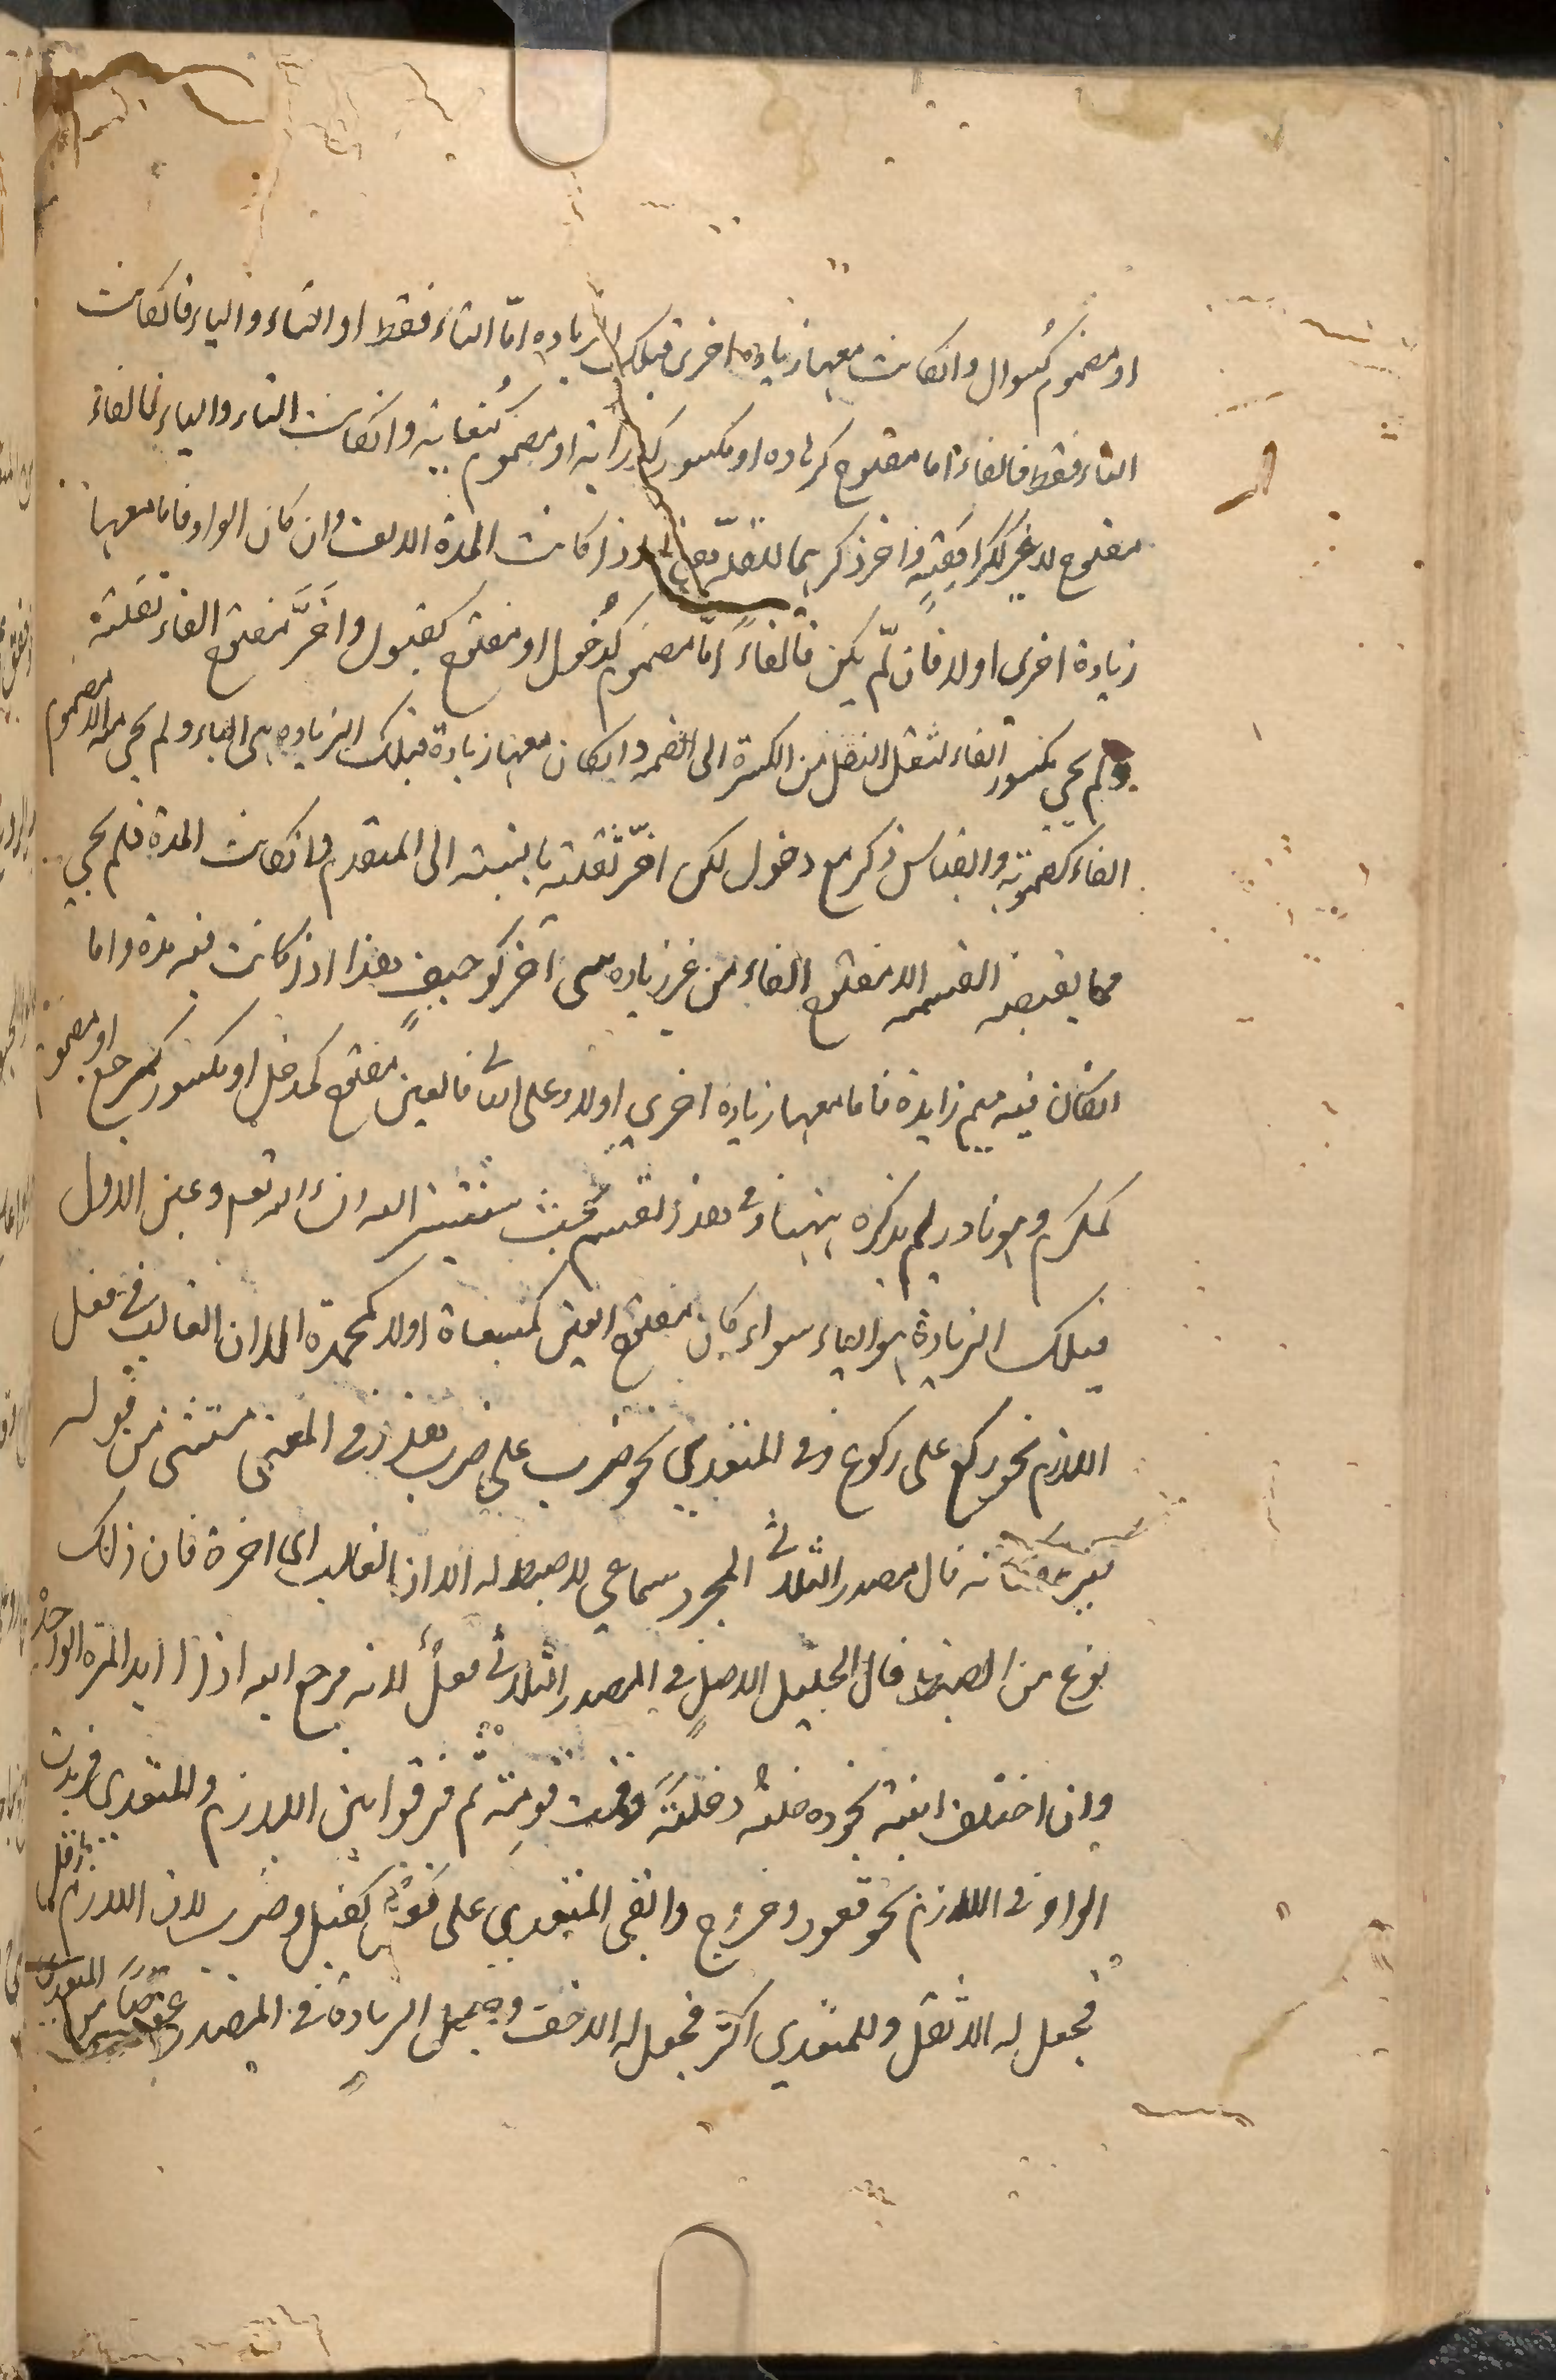 او مضموم كسوال وانكانت معها زيادة اخرى فتلك الزيادة امّا التاء فقط او التاء والياء فانكانت
التاء فقط فالفاء اما مفتوح كزهادة او مكسور كدراية او مضموم كبغاية وانكانت التاء والياء فالفاء
مفتوح لا غير ككراهية واخر ذكرهما للقلة هذا اذا كانت المدة الالف وان كان الواو فاما معها
زيادة اخرى او لا فان لم يكن فالفاء امّا مضموم كدخول او مفتوح كقبول واخّر مفتوح الفاء لقلته
ولم يجئ مكسور الفاء لثقل النقل من الكسرة الى الضمة وانكان معها زيادة فتلك الزيادة هي التاء ولم يجئ منه الا مضموم
الفاء كصهوبة والقياس ذكره مع دخول لكن اخّر لقلته بالنسبة الى المتقدم وانكانت المدة فلم يجئ
مما يقتضيه القسمة الا مفتوح الفاء من غير زيادة شئ آخر كوجيف هذا اذا كانت فيه مدة واما
انكان فيه ميم زايدة فاما معها زيادة اخرى او لا وعلى الثاني فالعين مفتوح كمدخل او مكسور كمرجع او مضموم
كمكرم وهو نادر لم يذكره ههنا وفي هذا القسم بحث سنشير اليه ان شاء الله تعالى وعين الاول
فتلك الزيادة هو التاء سواء كان مفتوح العين كمسعاة او لا كمحمدة الا ان الغالب في فعل
اللازم نحو ركع على ركوع وفي المتعدي نحو ضرب على ضرب هذا في المعنى مستثنى من قوله
كانه قال مصدر الثلاثي المجرد سماعي لا ضبط له الا ان الغالب الى اخره فان ذلك
نوع من الضبط قال الخليل الاصل في المصدر الثلاثي فعل لانه مرجع اليه اذا اريد المرة الواحدة
وان اختلف ابنيته نحو دخلته دخلة وقمت قومة ثم فرقوا بين اللازم والمتعدي فزيدت
الواو في اللازم نحو قعود وخروج وابقي المتعدي على كقتل وضرب لان اللازم اقل
فجعل له الاثقل وللمتعدي اكثر فجعل له الاخف وجعل الزيادة في المصدر عوضا من المتعدي